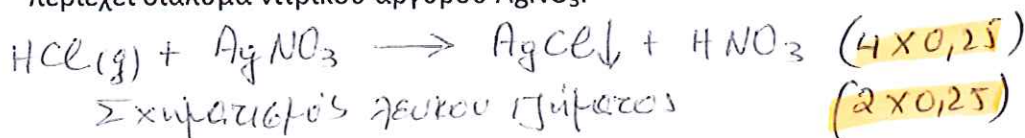 περιέχει διάλυμα νιτρικού αργύρου AgNO₃.
HCl(g) + AgNO₃ → AgCl↓ + HNO₃ (4 x 0,25)
Σχηματισμός λευκού ιζήματος (2 x 0,25)